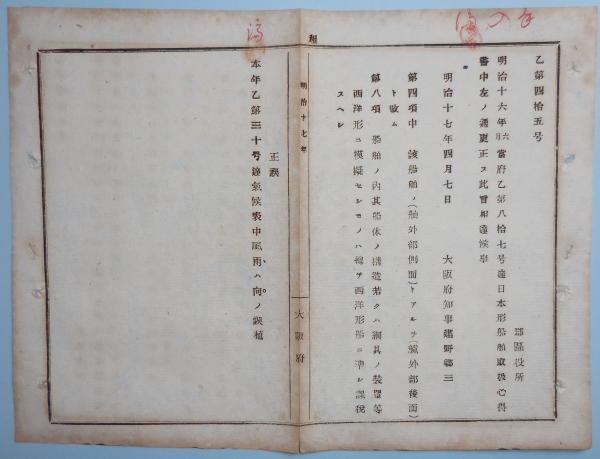 乙第四拾五号
郡區役所
明治十六年六月當府乙第八拾七号達日本形船舶取扱心得
書中左ノ通更正ス此旨相達候事
明治十七年四月七日
大阪府知事建野郷三
第四項中 該船舶ノ(舳外部側面)トアルヲ(艫外部後面)
ト改ム
第八項 船舶ノ内其船体ノ構造若クハ綱具ノ装置等
西洋形ニ模擬セシモノハ總テ西洋形船ニ準シ課税
スヘシ
明治十七年
大阪府
正誤
本年乙第三十号達氣候表中風雨ハ向ノ誤植